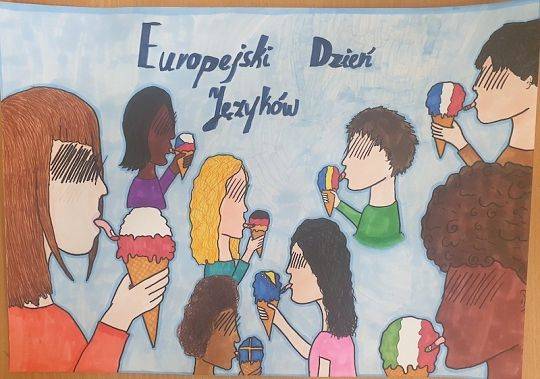 Europejski Dzień
Języków